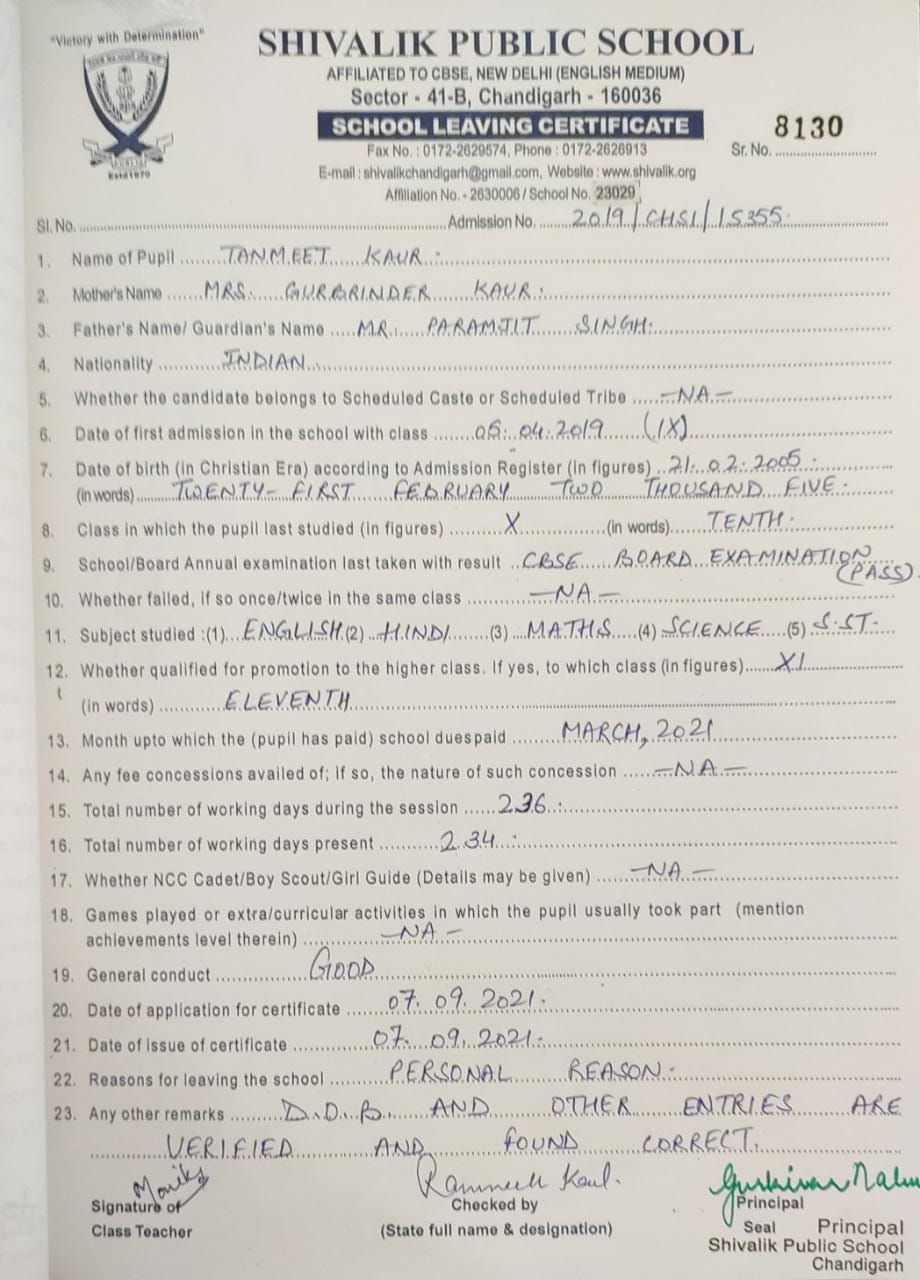 "Victory with Determination"
SHIVALIK PUBLIC SCHOOL
AFFILIATED TO CBSE, NEW DELHI (ENGLISH MEDIUM)
Sector - 41-B, Chandigarh - 160036
SCHOOL LEAVING CERTIFICATE
8130
Fax No. : 0172-2629574, Phone : 0172-2626913
Sr. No.
E-mail : shivalikchandigarh@gmail.com, Website : www.shivalik.org
Estd 1970
Affiliation No. - 2630006 / School No. 23029
Sl. No. Admission No. 2019/CHSI/15355.
1. Name of Pupil TANMEET KAUR.
2. Mother's Name MRS. GURBRINDER KAUR.
3. Father's Name/ Guardian's Name MR. PARAMJIT SINGH.
4. Nationality INDIAN
5. Whether the candidate belongs to Scheduled Caste or Scheduled Tribe -NA-
6. Date of first admission in the school with class 05.04.2019 (IX)
7. Date of birth (in Christian Era) according to Admission Register (in figures) 21.02.2005.
(in words) TWENTY-FIRST FEBRUARY TWO THOUSAND FIVE.
8. Class in which the pupil last studied (in figures) X (in words) TENTH.
9. School/Board Annual examination last taken with result CBSE BOARD EXAMINATION
(PASS)
10. Whether failed, if so once/twice in the same class -NA-
11. Subject studied :(1) ENGLISH (2) HINDI (3) MATHS (4) SCIENCE (5) S.ST.
12. Whether qualified for promotion to the higher class. If yes, to which class (in figures) XI
(in words) ELEVENTH
13. Month upto which the (pupil has paid) school duespaid MARCH, 2021
14. Any fee concessions availed of; if so, the nature of such concession -NA-
15. Total number of working days during the session 236.
16. Total number of working days present 234.
17. Whether NCC Cadet/Boy Scout/Girl Guide (Details may be given) -NA-
18. Games played or extra/curricular activities in which the pupil usually took part (mention
achievements level therein) -NA-
19. General conduct GOOD
20. Date of application for certificate 07.09.2021.
21. Date of issue of certificate 07.09.2021.
22. Reasons for leaving the school PERSONAL REASON.
23. Any other remarks D.O.B. AND OTHER ENTRIES ARE
VERIFIED AND FOUND CORRECT.
Signature of Checked by Principal
Class Teacher (State full name & designation) Seal Principal
Shivalik Public School
Chandigarh